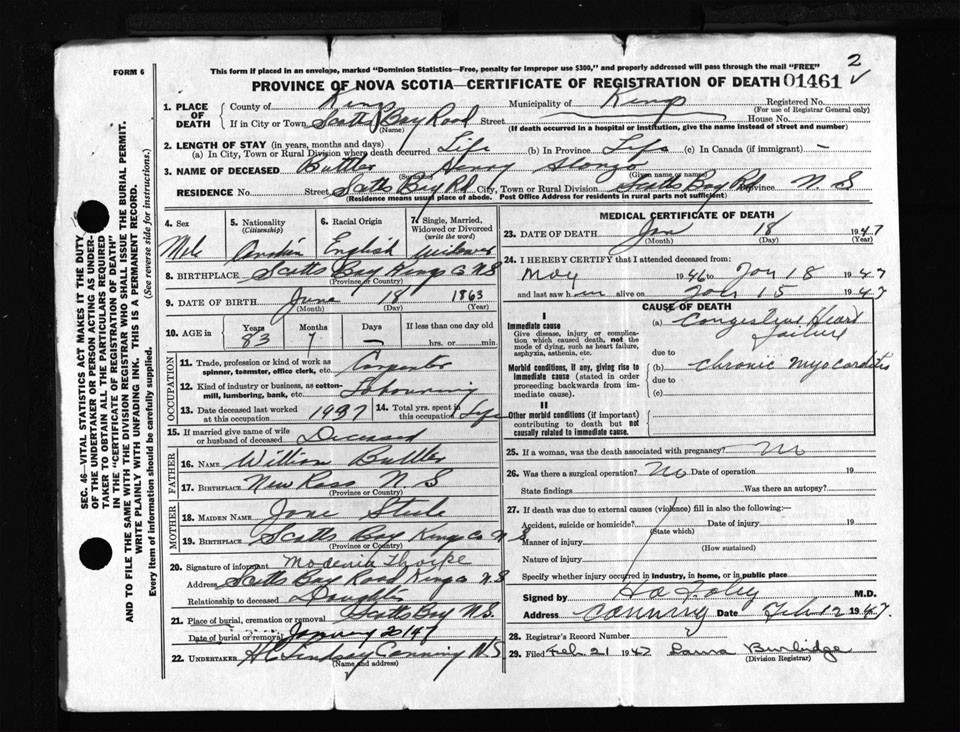 2
FORM 6
This form if placed in an envelope, marked "Dominion Statistics—Free, penalty for improper use $300," and properly addressed will pass through the mail "FREE"
PROVINCE OF NOVA SCOTIA—CERTIFICATE OF REGISTRATION OF DEATH 01461
1. PLACE OF DEATH
County of Kings Municipality of Kings Registered No.
(For use of Registrar General only)
If in City or Town Scotts Bay Road Street House No.
(Name) (If death occurred in a hospital or institution, give the name instead of street and number)
2. LENGTH OF STAY (in years, months and days)
(a) In City, Town or Rural Division where death occurred Life (b) In Province Life (c) In Canada (if immigrant) —
3. NAME OF DECEASED Buttler Henry Alonzo
(Surname) (Given name or names)
RESIDENCE No. Street Scotts Bay Rd City, Town or Rural Division Scotts Bay Rd Province N. S
(Residence means usual place of abode. Post Office Address for residents in rural parts not sufficient)
4. Sex Male
5. Nationality (Citizenship)
6. Racial Origin English
7. Single, Married, Widowed or Divorced (write the word) Widower
8. BIRTHPLACE Scotts Bay Kings Co N.S
(Province or Country)
9. DATE OF BIRTH June 18 1863
(Month) (Day) (Year)
10. AGE in Years 83 Months 7 Days — If less than one day old hrs. or min.
OCCUPATION
11. Trade, profession or kind of work as spinner, teamster, office clerk, etc. Carpenter
12. Kind of industry or business, as cotton-mill, lumbering, bank, etc. Labouring
13. Date deceased last worked at this occupation 1937
14. Total yrs. spent in this occupation Life
15. If married give name of wife or husband of deceased Deceased
FATHER
16. NAME William Buttler
17. BIRTHPLACE New Ross N S
(Province or Country)
MOTHER
18. MAIDEN NAME Jane Steele
19. BIRTHPLACE Scotts Bay Kings Co N S
(Province or Country)
20. Signature of informant Thorpe
Address Scotts Bay Road Kings Co N.S
Relationship to deceased Daughter
21. Place of burial, cremation or removal Scotts Bay N.S.
Date of burial or removal January 20 1947
22. UNDERTAKER H C Lindsay Canning N.S
(Name and address)
MEDICAL CERTIFICATE OF DEATH
23. DATE OF DEATH Jan 18 1947
(Month) (Day) (Year)
24. I HEREBY CERTIFY that I attended deceased from:
May 1946 to Jan 18 1947
and last saw him alive on Jan 15 1947
CAUSE OF DEATH
I
Immediate cause
Give disease, injury or complication which caused death, not the mode of dying, such as heart failure, asphyxia, asthenia, etc.
(a) Congestive Heart Failure
due to
Morbid conditions, if any, giving rise to immediate cause (stated in order proceeding backwards from immediate cause).
(b) Chronic Myocarditis
due to
(c)
II
Other morbid conditions (if important) contributing to death but not causally related to immediate cause.
25. If a woman, was the death associated with pregnancy? No
26. Was there a surgical operation? No Date of operation 19
State findings Was there an autopsy?
27. If death was due to external causes (violence) fill in also the following:—
Accident, suicide or homicide? Date of injury 19
(State which)
Manner of injury
(How sustained)
Nature of injury
Specify whether injury occurred in industry, in home, or in public place
Signed by H A Foley M.D.
Address Canning Date Feb 12 1947.
28. Registrar's Record Number
29. Filed Feb 21 1947 Laura Burbidge
(Division Registrar)
SEC. 46—VITAL STATISTICS ACT MAKES IT THE DUTY
OF THE UNDERTAKER OR PERSON ACTING AS UNDER-
TAKER TO OBTAIN ALL THE PARTICULARS REQUIRED
IN THE "CERTIFICATE OF REGISTRATION OF DEATH"
AND TO FILE THE SAME WITH THE DIVISION REGISTRAR WHO SHALL ISSUE THE BURIAL PERMIT.
WRITE PLAINLY WITH UNFADING INK. THIS IS A PERMANENT RECORD.
Every item of information should be carefully supplied. (See reverse side for instructions.)